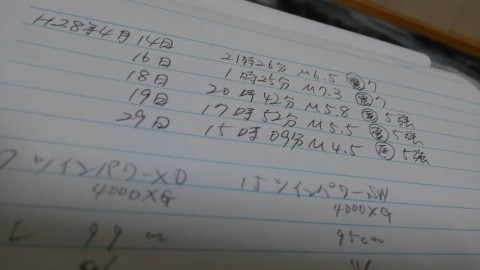 H28年4月14日 21時26分 M6.5 震7
16日 1時25分 M7.3 震7
18日 20時42分 M5.8 震5強
19日 17時52分 M5.5 震5強
29日 15時09分 M4.5 震5強
ツインパワーXD 15ツインパワーSW
4000XG 4000XG
99 cm 95cm